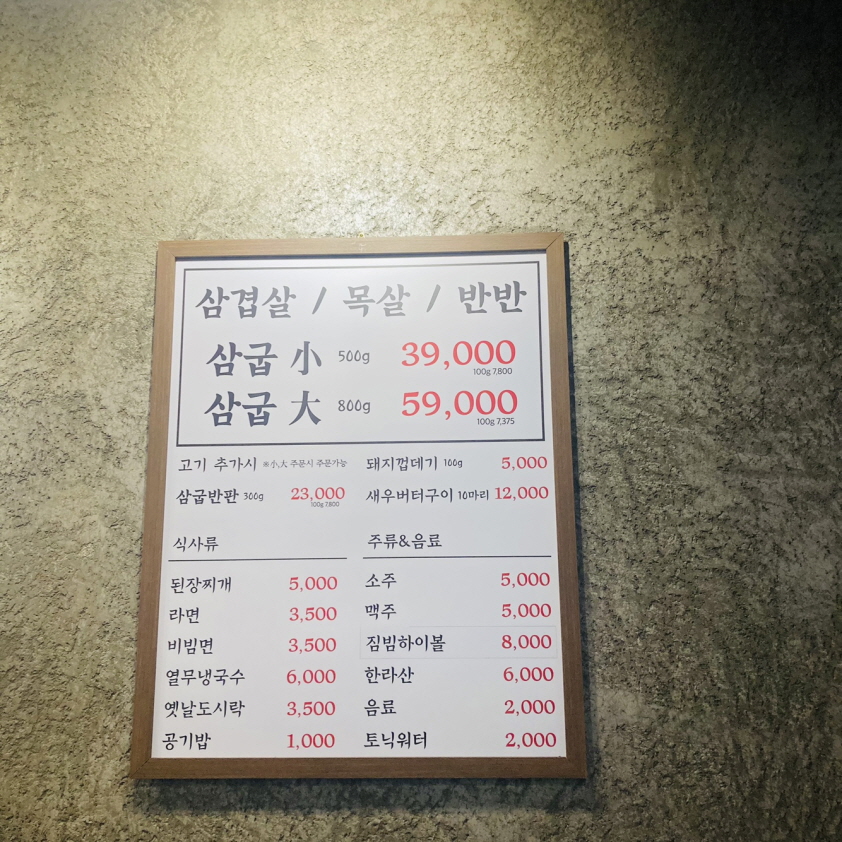 삼겹살 / 목살 / 반반
삼굽 小 500g 39,000
100g 7,800
삼굽 大 800g 59,000
100g 7,375
고기 추가시 ※小,大 주문시 주문가능
삼굽반판 300g 23,000
100g 7,800
돼지껍데기 100g 5,000
새우버터구이 10마리 12,000
식사류
된장찌개 5,000
라면 3,500
비빔면 3,500
열무냉국수 6,000
옛날도시락 3,500
공기밥 1,000
주류&음료
소주 5,000
맥주 5,000
짐빔하이볼 8,000
한라산 6,000
음료 2,000
토닉워터 2,000